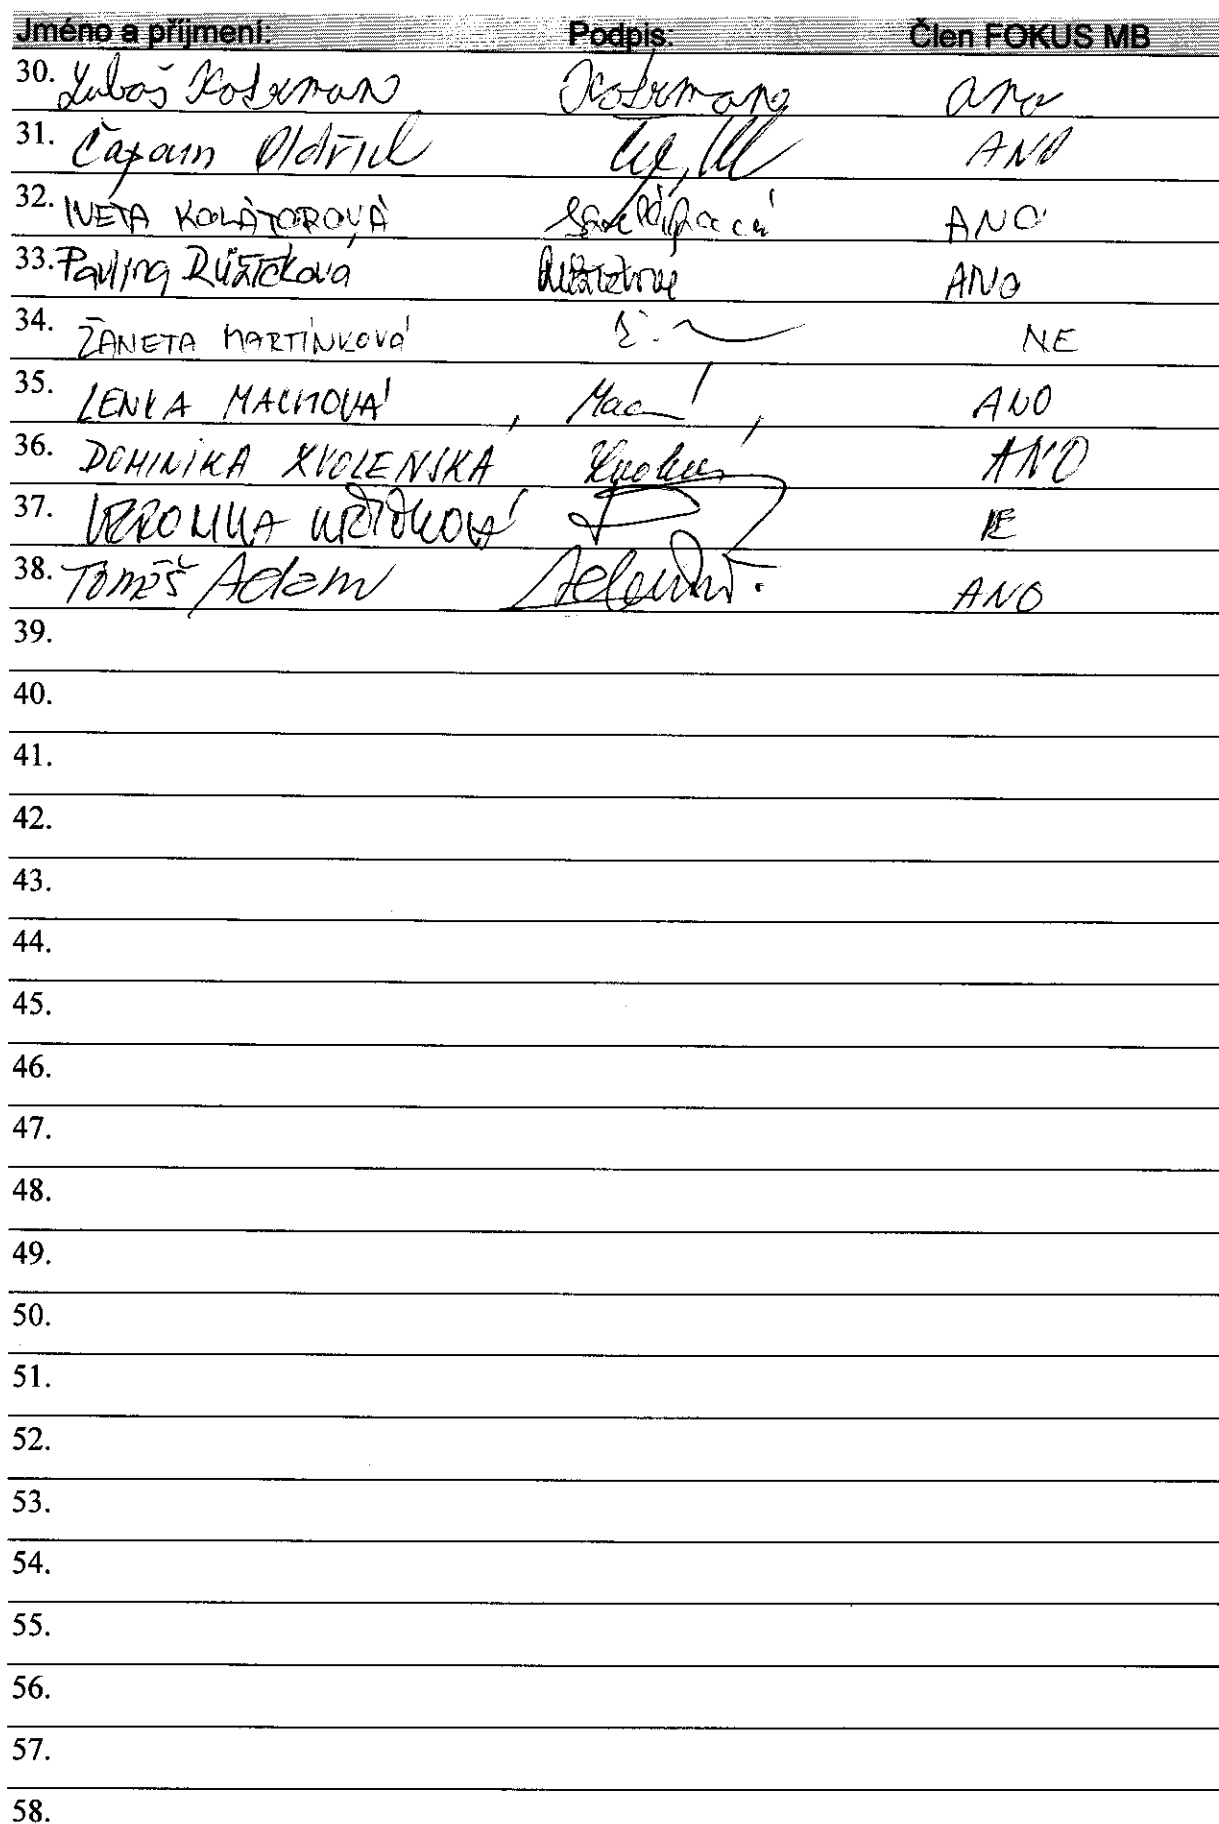 Jméno a příjmení: Podpis: Člen FOKUS MB
30. Luboš Kotrman Kotrman ano
31. Čapoun Oldřich ANO
32. IVETA KOLÁTOROVÁ ANO
33. Pavlína Růžičková Růžičková ANO
34. ŽANETA MARTÍNKOVÁ NE
35. LENKA MACHOVÁ ANO
36. DOMINIKA KVOLENSKÁ ANO
37. VERONIKA NE
38. Tomáš Adam ANO
39.
40.
41.
42.
43.
44.
45.
46.
47.
48.
49.
50.
51.
52.
53.
54.
55.
56.
57.
58.